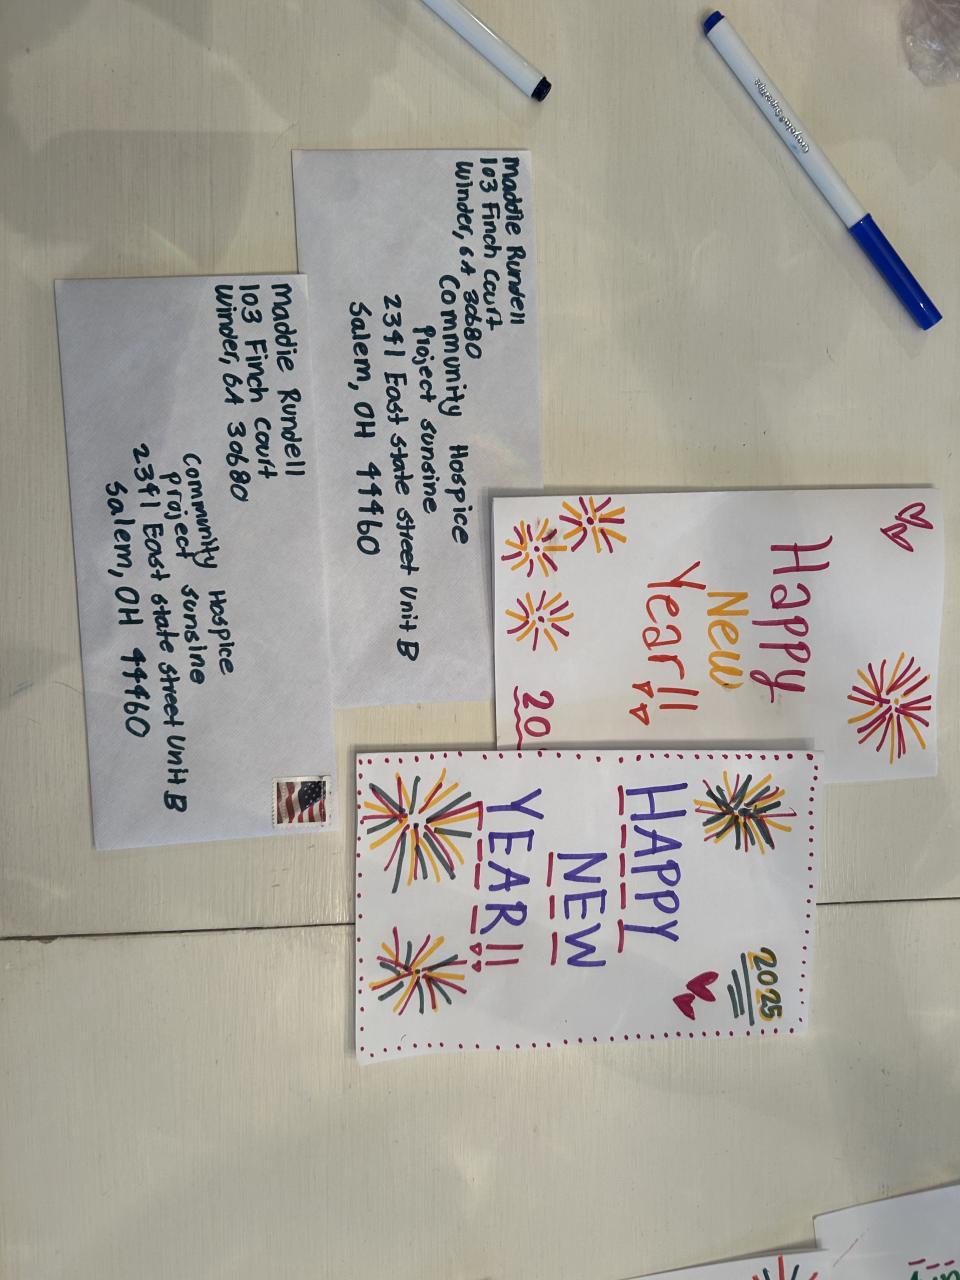 Maddie Rundell
103 Finch Court
Winder, GA 30680
Community Hospice
Project sunsine
2341 East state street Unit B
Salem, OH 44460
Maddie Rundell
103 Finch Court
Winder, GA 30680
Community Hospice
Project sunsine
2341 East state street Unit B
Salem, OH 44460
Happy
New
Year!!
20
2025
HAPPY
NEW
YEAR!!
Crayola SuperTips